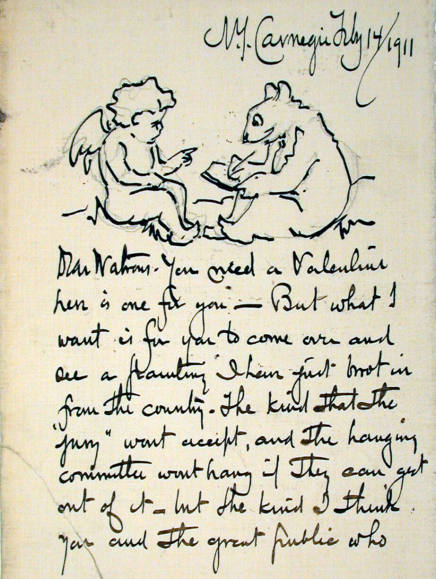 N.Y. Carnegie Feby 14/1911
Dear Watrous - You need a Valentine
here is one for you - But what I
want is for you to come over and
see a painting I have just brot in
from the country. The kind that the
"jury" wont accept, and the hanging
committee wont hang if they can get
out of it - but the kind I think
you and the great public who